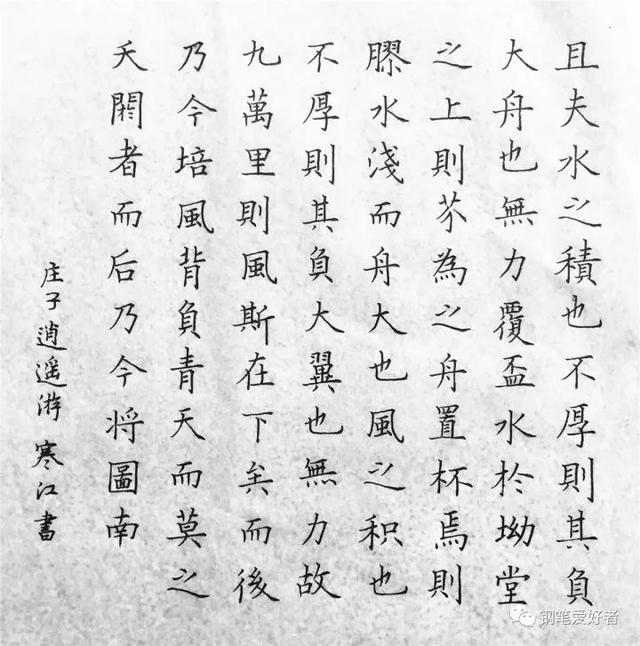 且夫水之積也不厚則其負
大舟也無力覆盃水於坳堂
之上則芥為之舟置杯焉則
膠水淺而舟大也風之积也
不厚則其負大翼也無力故
九萬里則風斯在下矣而後
乃今培風背負青天而莫之
夭閼者而后乃今将圖南
庄子逍遥游 寒江書
钢笔爱好者